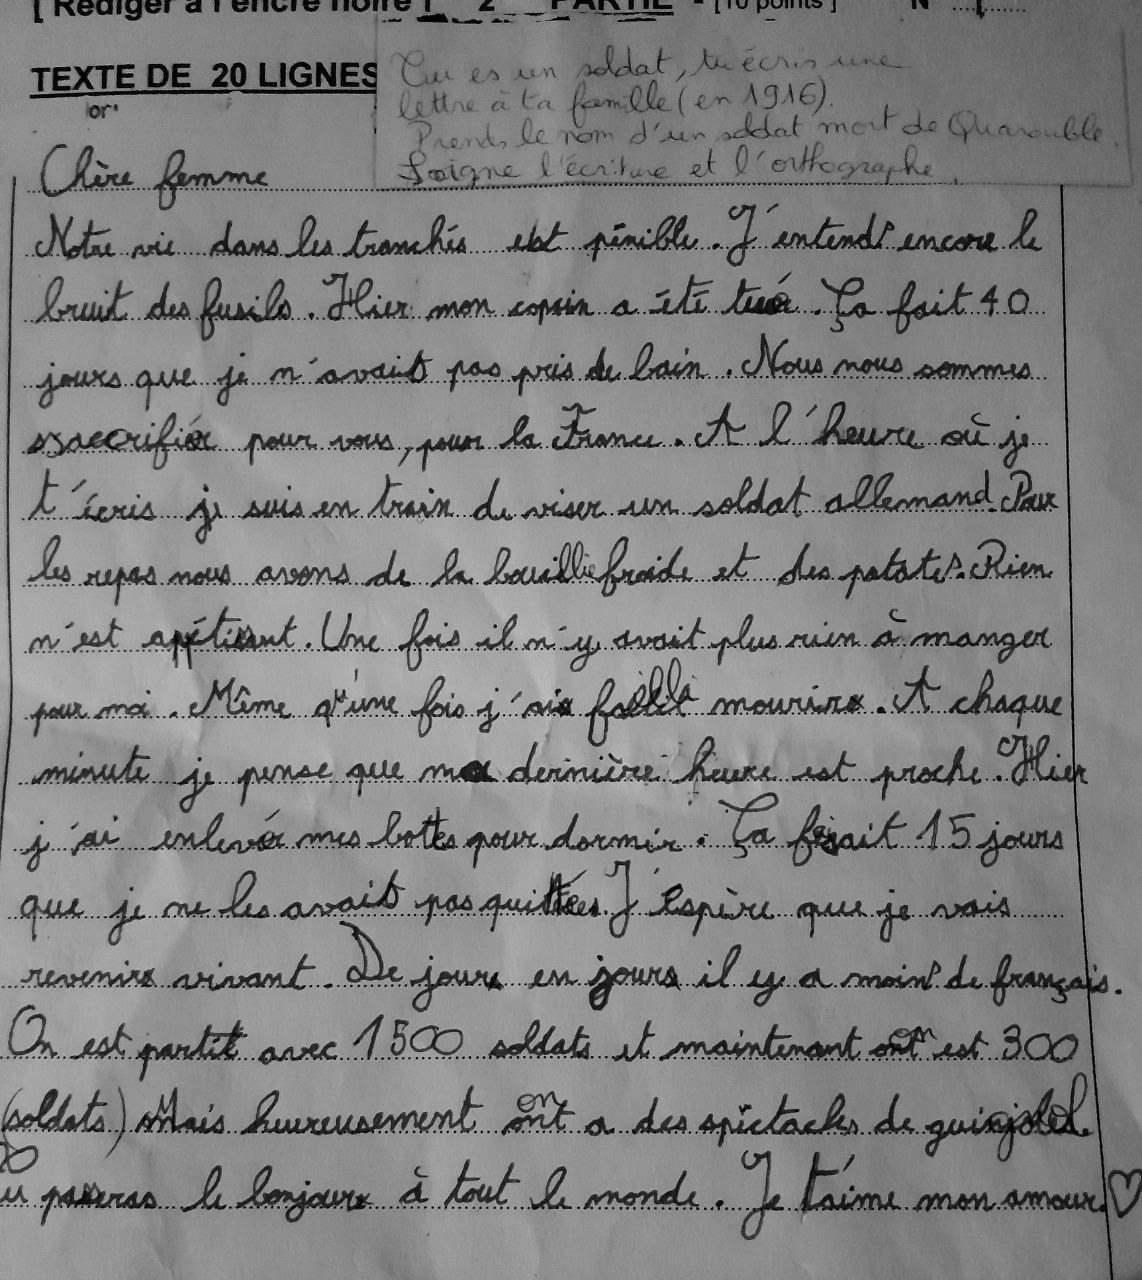 [ Rédiger à l'encre noire ] 2 PARTIE - [10 points] N°
TEXTE DE 20 LIGNES
or.
Tu es un soldat, tu écris une
lettre à ta famille (en 1916).
Prends le nom d'un soldat mort de Quarouble.
Soigne l'écriture et l'orthographe.
Chère femme
Notre vie dans les tranchés est pénible. J'entends encore le
bruit des fusils. Hier mon copain a été tué. Ça fait 40
jours que je n'avait pas pris de bain. Nous nous sommes
sacrifiér pour vous, pour la France. A l'heure où je
t'écris je suis en train de viser un soldat allemand. Pour
les repas nous avons de la bouillie froide et des patates. Rien
n'est appétissant. Une fois il n'y avait plus rien à manger
pour moi. Même qu'une fois j'ai failli mourir. A chaque
minute je pense que ma dernière heure est proche. Hier
j'ai enlevé mes bottes pour dormir. Ça fesait 15 jours
que je ne les avait pas quittées. J'espère que je vais
revenir vivant. De jour en jours il y a moins de français.
On est partit avec 1500 soldats et maintenant on est 300
(soldats) Mais heureusement on a des spectacles de guignol.
Tu passeras le bonjour à tout le monde. Je t'aime mon amour. ♡